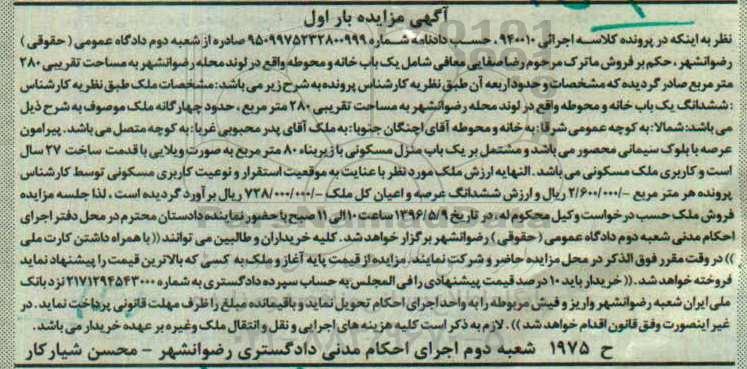 آگهی مزایده بار اول
نظر به اینکه در پرونده کلاسه اجرائی ۹۴۰۰۱۰، حسب دادنامه شماره ۹۵۰۹۹۷۵۲۳۲۸۰۰۹۹۹ صادره از شعبه دوم دادگاه عمومی (حقوقی)
رضوانشهر، حکم بر فروش ماترک مرحوم رضا صفایی معافی شامل یک باب خانه و محوطه واقع در لوند محله رضوانشهر به مساحت تقریبی ۲۸۰
متر مربع صادر گردیده که مشخصات و حدود اربعه آن طبق نظریه کارشناس پرونده به شرح زیر می باشد: مشخصات ملک طبق نظریه کارشناس
: ششدانگ یک باب خانه و محوطه واقع در لوند محله رضوانشهر به مساحت تقریبی ۲۸۰ متر مربع، حدود چهارگانه ملک موصوف به شرح ذیل
می باشد: شمالا: به کوچه عمومی شرقا: به خانه و محوطه آقای اچنگان جنوبا: به ملک آقای پدر محبوبی غربا: به کوچه متصل می باشد. پیرامون
عرصه با بلوک سیمانی محصور می باشد و مشتمل بر یک باب منزل مسکونی با زیربناء ۸۰ متر مربع به صورت ویلایی با قدمت ساخت ۲۷ سال
است و کاربری ملک مسکونی می باشد. النهایه ارزش ملک مورد نظر با عنایت به موقعیت استقرار و نوعیت کاربری مسکونی توسط کارشناس
پرونده هر متر مربع -/۲/۶۰۰/۰۰۰ ریال و ارزش ششدانگ عرصه و اعیان کل ملک -/۷۲۸/۰۰۰/۰۰۰ ریال برآورد گردیده است. لذا جلسه مزایده
فروش ملک حسب درخواست وکیل محکوم له، در تاریخ ۱۳۹۶/۵/۹ ساعت ۱۰ الی ۱۱ صبح با حضور نماینده دادستان محترم در محل دفتر اجرای
احکام مدنی شعبه دوم دادگاه عمومی (حقوقی) رضوانشهر برگزار خواهد شد. کلیه خریداران و طالبین می توانند ((با همراه داشتن کارت ملی
)) در وقت مقرر فوق الذکر در محل مزایده حاضر و شرکت نمایند. مزایده از قیمت پایه آغاز و ملک به کسی که بالاترین قیمت را پیشنهاد نماید
فروخته خواهد شد. ((خریدار باید ۱۰ درصد قیمت پیشنهادی را فی المجلس به حساب سپرده دادگستری به شماره ۲۱۷۱۲۹۴۵۴۳۰۰۰ نزد بانک
ملی ایران شعبه رضوانشهر واریز و فیش مربوطه را به واحد اجرای احکام تحویل نماید و باقیمانده مبلغ را ظرف مهلت قانونی پرداخت نماید. در
غیر اینصورت وفق قانون اقدام خواهد شد)). لازم به ذکر است کلیه هزینه های اجرایی و نقل و انتقال ملک و غیره بر عهده خریدار می باشد.
ح ۱۹۷۵ شعبه دوم اجرای احکام مدنی دادگستری رضوانشهر - محسن شیارکار